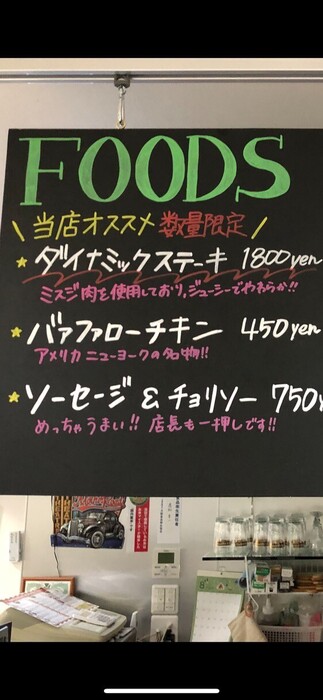 FOODS
当店オススメ 数量限定
ダイナミックステーキ 1800yen
ミスジ肉を使用しており、ジューシーでやわらか!!
バァファローチキン 450yen
アメリカ ニューヨークの名物!!
ソーセージ & チョリソー 750y
めっちゃうまい!! 店長も一押しです!!